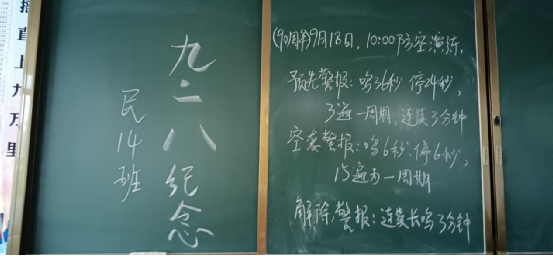 播直上九万里
九一八纪念
民14班
(90周年)9月18日，10:00防空演练.
预先警报：鸣36秒 停24秒，
3遍一周期，连续3分钟
空袭警报：鸣6秒、停6秒，
15遍为一周期
解除警报：连续长鸣3分钟